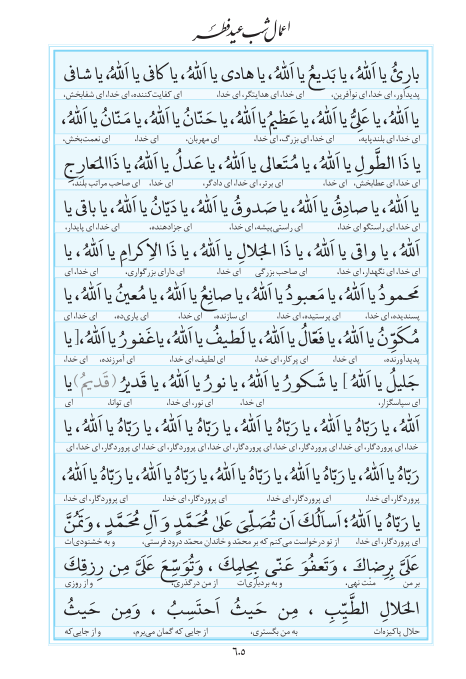 اعمال شب عید فطر
بارِئُ يا اَللهُ، يا بَديعُ يا اَللهُ، يا هادى يا اَللهُ، يا كافى يا اَللهُ، يا شافى
پدیدآور، ای خدا، ای نوآفرین، ای خدا، ای هدایتگر، ای خدا، ای کفایت‌کننده، ای خدا، ای شفابخش،
يا اَللهُ، يا عَلِىُّ يا اَللهُ، يا عَظيمُ يا اَللهُ، يا حَنّانُ يا اَللهُ، يا مَنّانُ يا اَللهُ،
ای خدا، ای بلندپایه، ای خدا، ای بزرگ، ای خدا، ای مهربان، ای خدا، ای نعمت‌بخش،
يا ذَا الطَّولِ يا اَللهُ، يا مُتَعالى يا اَللهُ، يا عَدلُ يا اَللهُ، يا ذَا المَعارِجِ
ای خدا، ای عطابخش، ای خدا، ای برتر، ای خدا، ای دادگر، ای خدا، ای صاحب مراتب بلند،
يا اَللهُ، يا صادِقُ يا اَللهُ، يا صَدوقُ يا اَللهُ، يا دَيّانُ يا اَللهُ، يا باقى يا
ای خدا، ای راستگو ای خدا، ای راستی‌پیشه، ای خدا، ای جزادهنده، ای خدا، ای پایدار،
اَللهُ، يا واقى يا اَللهُ، يا ذَا الجَلالِ يا اَللهُ، يا ذَا الاِكرامِ يا اَللهُ، يا
ای خدا، ای نگهدار، ای خدا، ای صاحب بزرگی ای خدا، ای دارای بزرگواری، ای خدا، ای
مَحمودُ يا اَللهُ، يا مَعبودُ يا اَللهُ، يا صانِعُ يا اَللهُ، يا مُعينُ يا اَللهُ، يا
پسندیده، ای خدا، ای پرستیده، ای خدا، ای سازنده، ای خدا، ای یاری‌ده، ای خدا، ای
مُكَوِّنُ يا اَللهُ، يا فَعّالُ يا اَللهُ، يا لَطيفُ يا اَللهُ، يا غَفورُ يا اَللهُ، [يا
پدیدآورنده، ای خدا، ای پرکار، ای خدا، ای لطیف، ای خدا، ای آمرزنده، ای خدا،
جَليلُ يا اَللهُ] يا شَكورُ يا اَللهُ، يا نورُ يا اَللهُ، يا قَديرُ (قَديمُ) يا
ای سپاسگزار، ای خدا، ای نور، ای خدا، ای توانا، ای
اَللهُ، يا رَبّاهُ يا اَللهُ، يا رَبّاهُ يا اَللهُ، يا رَبّاهُ يا اَللهُ، يا رَبّاهُ يا اَللهُ، يا
خدا، ای پروردگار، ای خدا، ای پروردگار، ای خدا، ای پروردگار، ای خدا، ای پروردگار، ای خدا، ای
رَبّاهُ يا اَللهُ، يا رَبّاهُ يا اَللهُ، يا رَبّاهُ يا اَللهُ، يا رَبّاهُ يا اَللهُ، يا رَبّاهُ يا اَللهُ،
پروردگار، ای خدا، ای پروردگار، ای خدا، ای پروردگار، ای خدا، ای پروردگار، ای خدا،
يا رَبّاهُ يا اَللهُ؛ اَسأَلُكَ اَن تُصَلِّىَ عَلىٰ مُحَمَّدٍ وَ آلِ مُحَمَّدٍ، وَ تَمُنَّ
ای پروردگار، ای خدا، از تو درخواست می‌کنم که بر محمّد و خاندان محمّد درود فرستی، و به خشنودی‌ات
عَلَىَّ بِرِضاكَ، وَ تَعفُوَ عَنّى بِحِلمِكَ، وَ تُوَسِّعَ عَلَىَّ مِن رِزقِكَ
بر من منّت نهی، و به بردباری‌ات از من درگذری، و از روزی
الحَلالِ الطَّيِّبِ، مِن حَيثُ اَحتَسِبُ، وَ مِن حَيثُ
حلال پاکیزه‌ات به من بگستری، از جایی که گمان می‌برم، و از جایی‌که
٦٠٥